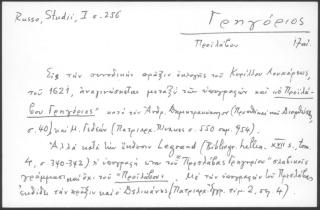 Russo, Studii, I σ. 256
Γρηγόριος
Προϊλάβου 17αι.
Εἰς τὴν συνοδικὴν πρᾶξιν ἐκλογῆς τοῦ Κυρίλλου Λουκάρεως,
τοῦ 1621, ἀναγινώσκεται μεταξὺ τῶν ὑπογραφῶν καὶ "ὁ Προϊλά-
βου Γρηγόριος" κατὰ τὸν Ἀνδρ. Δημητρακόπουλον (Προσθῆκαι καὶ Διορθώσεις,
σ. 40) καὶ Μ. Γεδεὼν (Πατριαρχ. Πίνακες σ. 550 σημ. 954).
Ἀλλὰ κατὰ τὴν ἔκδοσιν Legrand (Bibliogr. hellén. XVII s. tom.
4, σ. 340-342) ἡ ὑπογραφὴ "Προϊλάβου Γρηγορίου" σλαβικοῖς
γράμμασι καὶ ὄχι τοῦ "Προϊλάβου". Μὲ τὴν ὑπογραφὴν Προϊλάβου
ἐκδίδει τὴν πρᾶξιν καὶ ὁ Δελικάνης (Πατριαρχ. Ἔγγρ. τόμ. 2, σ. 4).